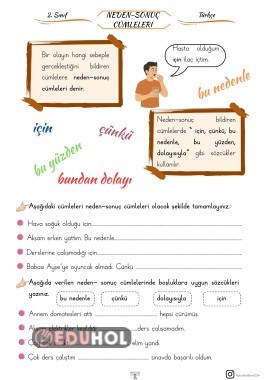 2. Sınıf
NEDEN-SONUÇ
CÜMLELERİ
Türkçe
Bir olayın hangi sebeple
gerçekleştiğini bildiren
cümlelere neden-sonuç
cümleleri denir.
Hasta olduğum
için ilaç içtim.
bu nedenle
için
çünkü
bu yüzden
bundan dolayı
Neden-sonuç bildiren
cümlelerde " için, çünkü, bu
nedenle, bu yüzden,
dolayısıyla" gibi sözcükler
kullanılır.
Aşağıdaki cümleleri neden-sonuç cümleleri olacak şekilde tamamlayınız.
Hava soğuk olduğu için
Akşam erken yattım. Bu nedenle
Derslerine çalışmadığı için
Babası Ayşe'ye oyuncak almadı. Çünkü
Aşağıda verilen neden- sonuç cümlelerinde boşluklara uygun sözcükleri
yazınız.
bu nedenle
çünkü
dolayısıyla
için
Annem domatesleri attı hepsi çürümüş.
ders çalışamadım.
EDUHOL
Çok ders çalıştım sınavda başarılı oldum.